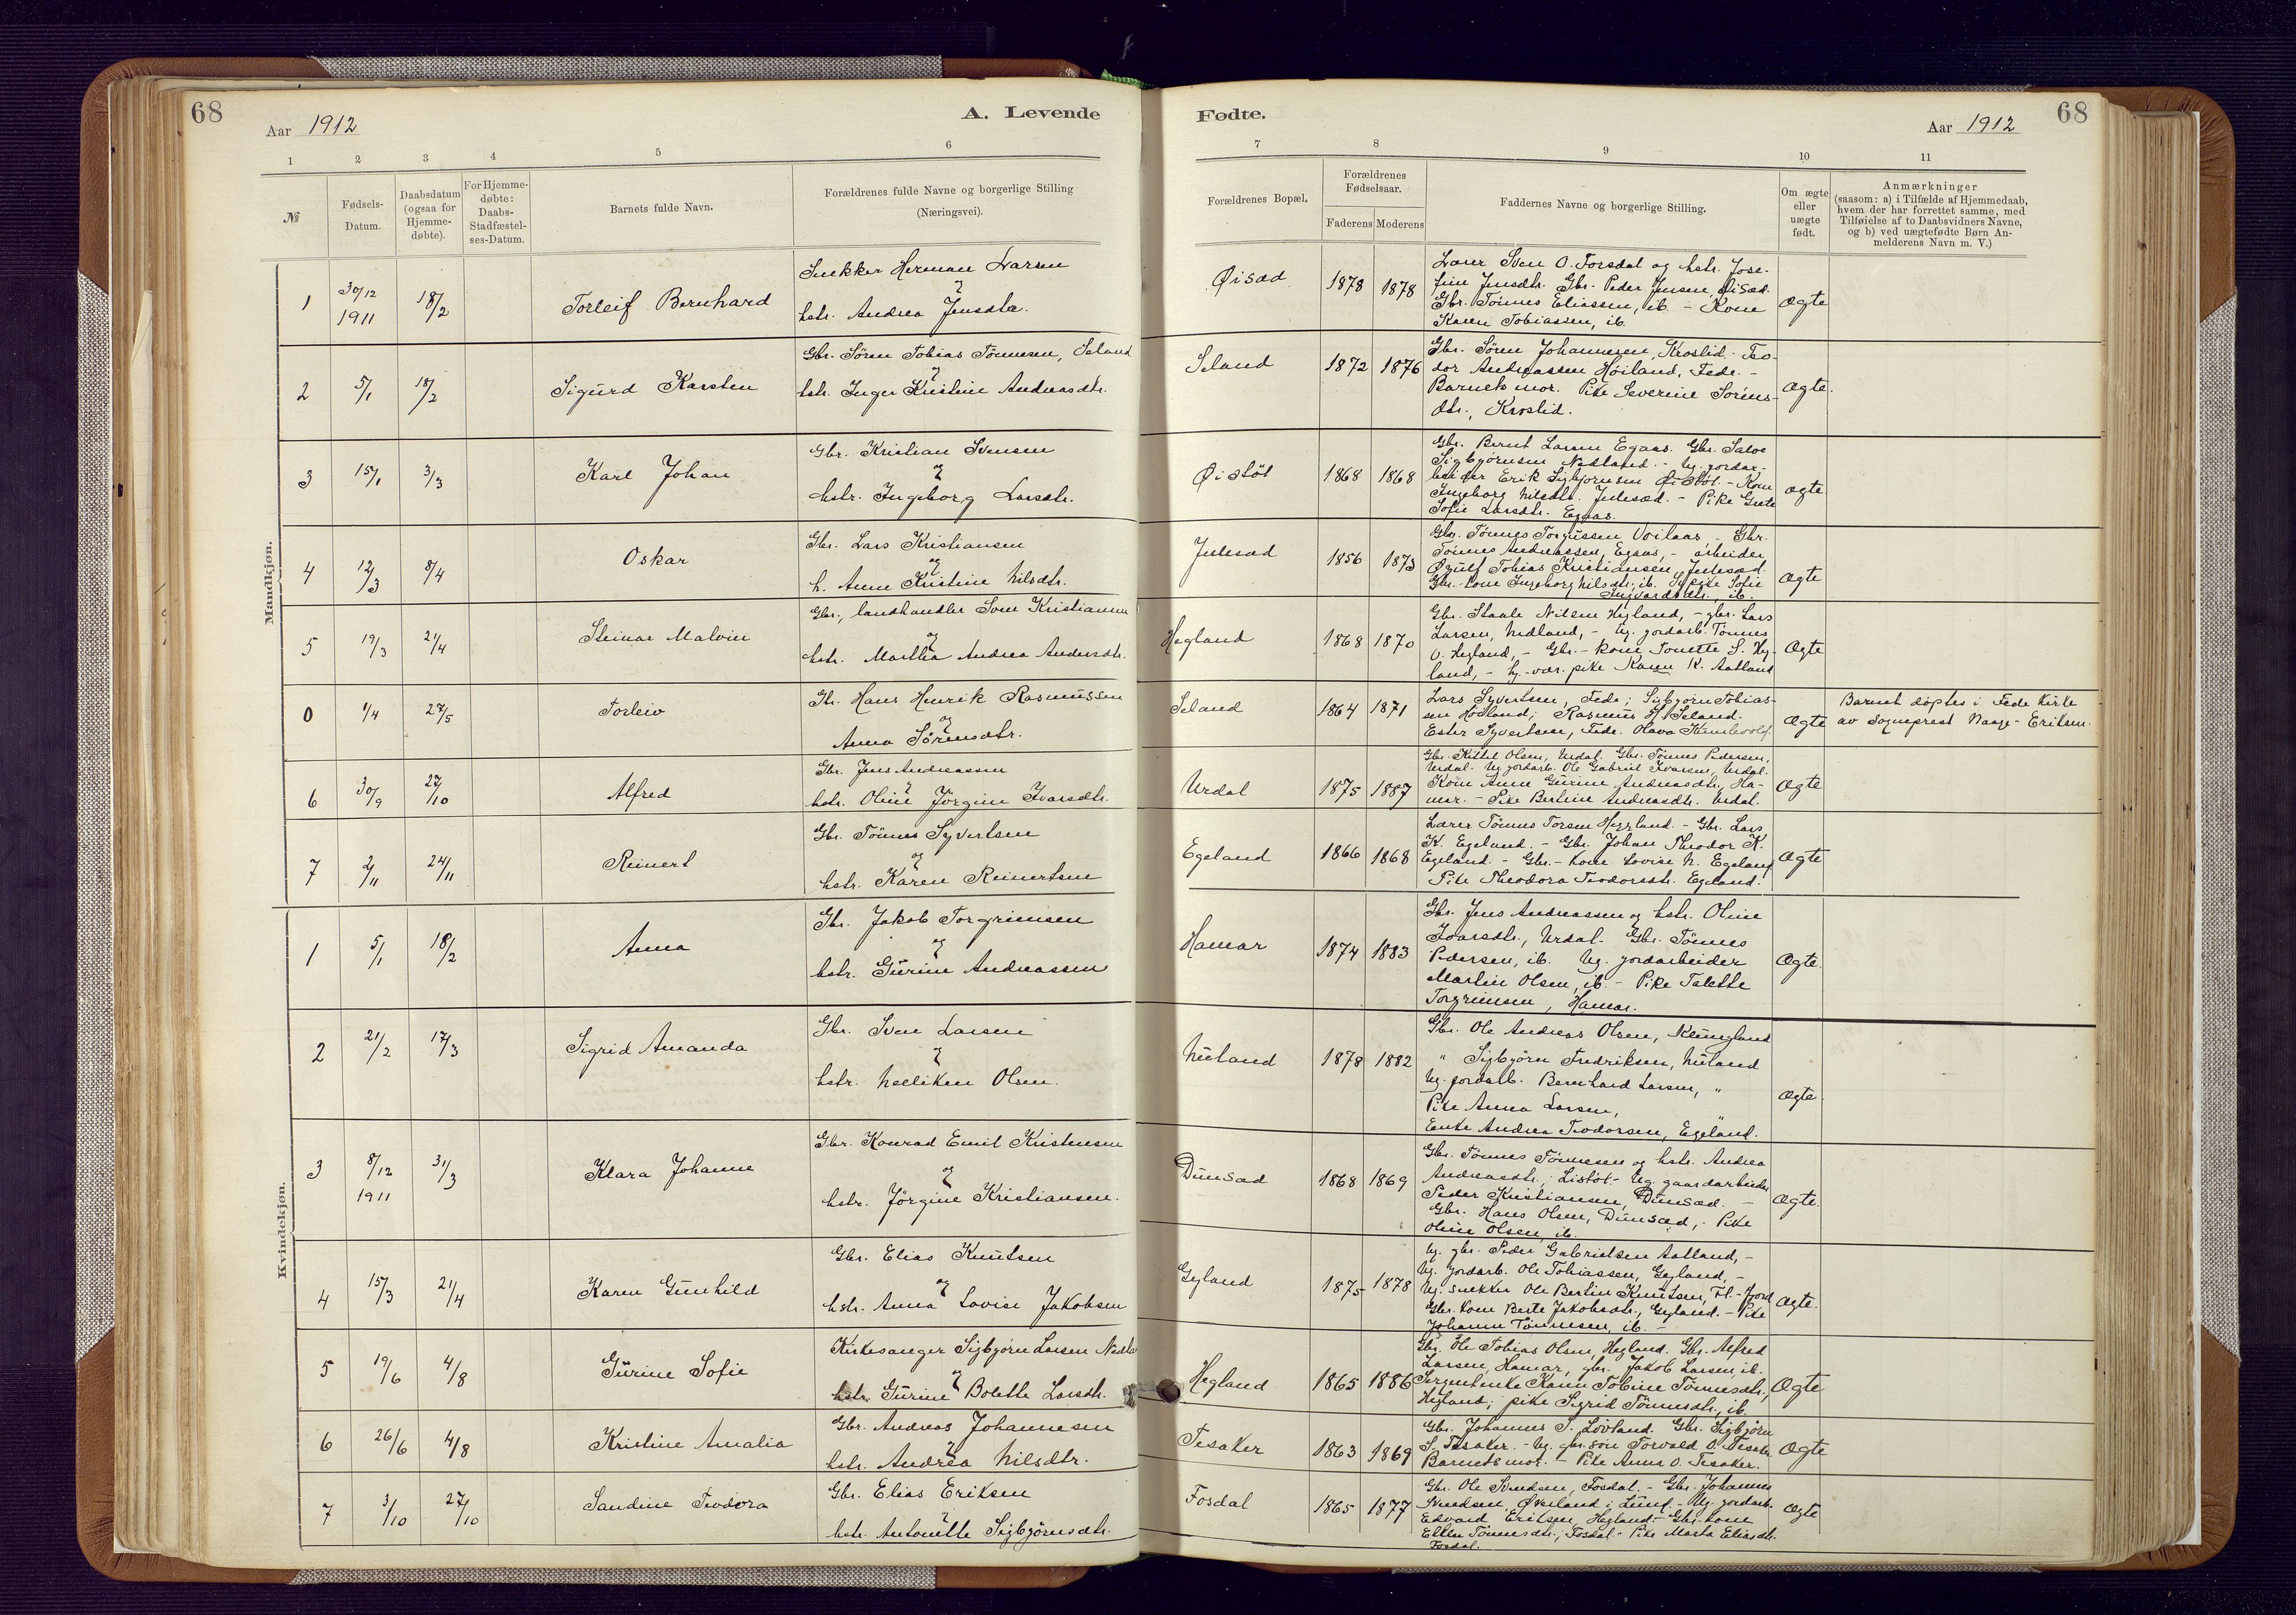 68
Aar 1912
A. Levende
1 2 3 4 5 6
№
Fødsels-Datum.
Daabsdatum (ogsaa for Hjemme-døbte).
For Hjemme-døbte: Daabs-Stadfæstel-ses-Datum.
Barnets fulde Navn.
Forældrenes fulde Navne og borgerlige Stilling
(Næringsvei).
Mandkjøn.
1 30/12 1911 18/2 Torleif Bernhard
Snekker Herman Larsen
og
hstr. Andrea Jensdtr.
2 5/1 18/2 Sigurd Karsten
Gbr. Søren Tobias Tønnesen, Seland
og
hstr. Inger Kristine Andreasdtr.
3 15/1 3/3 Karl Johan
Gbr. Kristian Svensen
og
hstr. Ingeborg Larsdtr.
4 12/3 8/4 Oskar
Gbr. Lars Kristiansen
og
h. Anne Kristine Nilsdtr.
5 19/3 21/4 Steinar Malvin
Gbr., landhandler Sven Kristiansen
og
hstr. Martha Andrea Andersdtr.
0 1/4 27/5 Torleiv
Gbr. Hans Henrik Rasmussen
og
Anna Sørensdtr.
6 30/9 27/10 Alfred
Gbr. Jens Andreassen
og
hstr. Oline Jørgine Ivarsdtr.
7 2/11 24/11 Reinert
Gbr. Tønnes Syvertsen
og
hstr. Karen Reinertsen
Kvindekjøn.
1 5/1 18/2 Anna
Gbr. Jakob Torgrimsen
og
hstr. Gurine Andreassen
2 21/2 17/3 Sigrid Amanda
Gbr. Sven Larsen
og
hstr. Neeliken Olsen.
3 8/12 1911 31/3 Klara Johanne
Gbr. Konrad Emil Kristensen
og
hstr. Jörgine Kristiansen.
4 15/3 21/4 Karen Gunhild
Gbr. Elias Knutsen
og
hstr. Anna Lovise Jakobsen
5 19/6 4/8 Gurine Sofie
Kirkesanger Sigbjørn Larsen
og
hstr. Gurine Bolette Larsdtr.
6 26/6 4/8 Kristine Amalia
Gbr. Andreas Johannesen
og
hstr. Andrea Nilsdtr.
7 3/10 27/10 Sandine Teodora
Gbr. Elias Eriksen
og
hstr. Antonette Sigbjørnsdtr.
Fødte.
Aar 1912
68
7 8 9 10 11
Forældrenes Bopæl.
Forældrenes Fødselsaar.
Faderens Moderens
Faddernes Navne og borgerlige Stilling.
Om ægte eller uægte født.
Anmærkninger
(saasom: a) i Tilfælde af Hjemmedaab,
hvem der har forrettet samme, med
Tilføielse af to Daabsvidners Navne,
og b) ved uægtefødte Børn An-
melderens Navn m. V.)
Øisæd 1878 1878
Lærer Sven O. Forsdal og hstr. Jose-
fine Jensdtr. Gbr. Peder Jensen, Øisæd.
Gbr. Tønnes Eliassen, ib. - Kone
Karen Tobiassen, ib.
Ægte
Seland 1872 1876
Gbr. Søren Johannesen, Kroslid. Teo-
dor Andreassen Høiland, Fede. -
Barnets mor. Pike Severine Sørens-
dtr., Kroslid.
Ægte.
Øistøl 1868 1868
Gbr. Bernt Larsen Egaas. Gbr. Salve
Sigbjørnsen Nedland. - Ug. jordar-
beider Erik Sigbjørnsen Øistøl. - Kone
Ingeborg Nilsdtr. Julesæd. - Pike Grete
Sofie Larsdtr. Egaas.
Ægte
Julesæd 1856 1873
Gbr. Tønnes Torgussen, - Gbr.
Tønnes Andreassen, Egaas, - arbeider
Tobias Kristiansen, Julesæd.
Gbr. kone Ingeborg Nilsdtr. ib. pike Sofie
Ingvardsdtr., ib.
Ægte
Hegland 1868 1870
Gbr. Staale Nilsen Hegland, - gbr. Lars
Larsen, Nedland, - Ug. jordarb. Tønnes
O. Hegland, - Gbr. - kone, Tonette S. Heg-
land, - pike Karen K. Aatland
Ægte
Seland 1864 1871
Lars Syvertsen, Fede; Sigbjørn Tobias-
sen Hødland; Rasmus H. Seland.
Ester Syvertsen, Fede. Olava
Ægte
Barnet døptes i Fede Kirke
av Sogneprest Eriksen.
Urdal 1875 1887
Gbr. Kittel Olsen, Urdal. Gbr. Tønnes Pedersen,
Urdal. Ug. jordarb. Ole Gabriel Ivarsen, Urdal.
Kone Anne Gurine Andreasdtr., Ha-
mar. - Pike Bertine Andreasdtr. Urdal.
Ægte
Egeland 1866 1868
Lærer Tønnes Torsen Hegland. - Gbr. Lars
K. Egeland. - Gbr. Johan Theodor K.
Egeland. - Gbr. - kone Lovise N. Egeland
Pike Theodora Teodorsdtr. Egeland.
Ægte
Hamar 1874 1883
Gbr. Jens Andreassen og hstr. Oline
Ivarsdtr., Urdal. Gbr. Tønnes
Pedersen, ib. Ug. jordarbeider
Martin Olsen, ib. - Pike Talette
Torgrimsen, Hamar.
Ægte.
Nuland 1878 1882
Gbr. Ole Andreas Olsen, Klungland
" Sigbjørn Fredriksen, Nuland
Ug. jordarb. Bernhard Larsen, "
Pike Anna Larsen,
Enke Andrea Teodorsen, Egeland.
Ægte.
Dunsæd 1868 1869
Gbr. Tønnes Tønnesen og hstr. Andrea
Andreasdtr., Listøl. - Ug. gaardarbeider
Peder Kristiansen, Dunsæd. -
Gbr. Hans Olsen, Dunsæd, - Pike
Oline Olsen, ib.
Ægte.
Gyland 1875 1878
Ug. gbr. Peder Gabrielsen Aatland, -
Ug. jordarb. Ole Tobiassen, Gyland, -
Ug. snekker Ole Bertin Knutsen, Fl.-fjord
Gbr. kone Berte Jakobsdtr., Gyland. - Pike
Johanne Tønnesen, ib. -
Ægte.
Hegland 1865 1886
Gbr. Ole Tobias Olsen, Hegland. Gbr. Alfred
Larsen, Hamar, gbr. Jakob Larsen, ib.
Sergentenke Karen Tobine Tønnesdtr.,
Hegland; pike Sigrid Tønnesdtr., ib.
Ægte
Tesaker 1863 1869
Gbr. Johannes S. Løvland. Gbr. Sigbjørn
S. Tesaker. - Ug. gbr. søn Torvald O. Tesaker
Barnets mor. - Pike Anna O. Tesaker.
Ægte
Fosdal 1865 1877
Gbr. Ole Svendsen, Fosdal. - Gbr. Johannes
Svendsen, Øveland i Lund. - Ug. jordarb.
Edvard Eriksen, Hegland. - Gbr. kone
Ellen Tønnesdtr., Fosdal. - Pike Marta Eliasdtr.
Fosdal.
Ægte